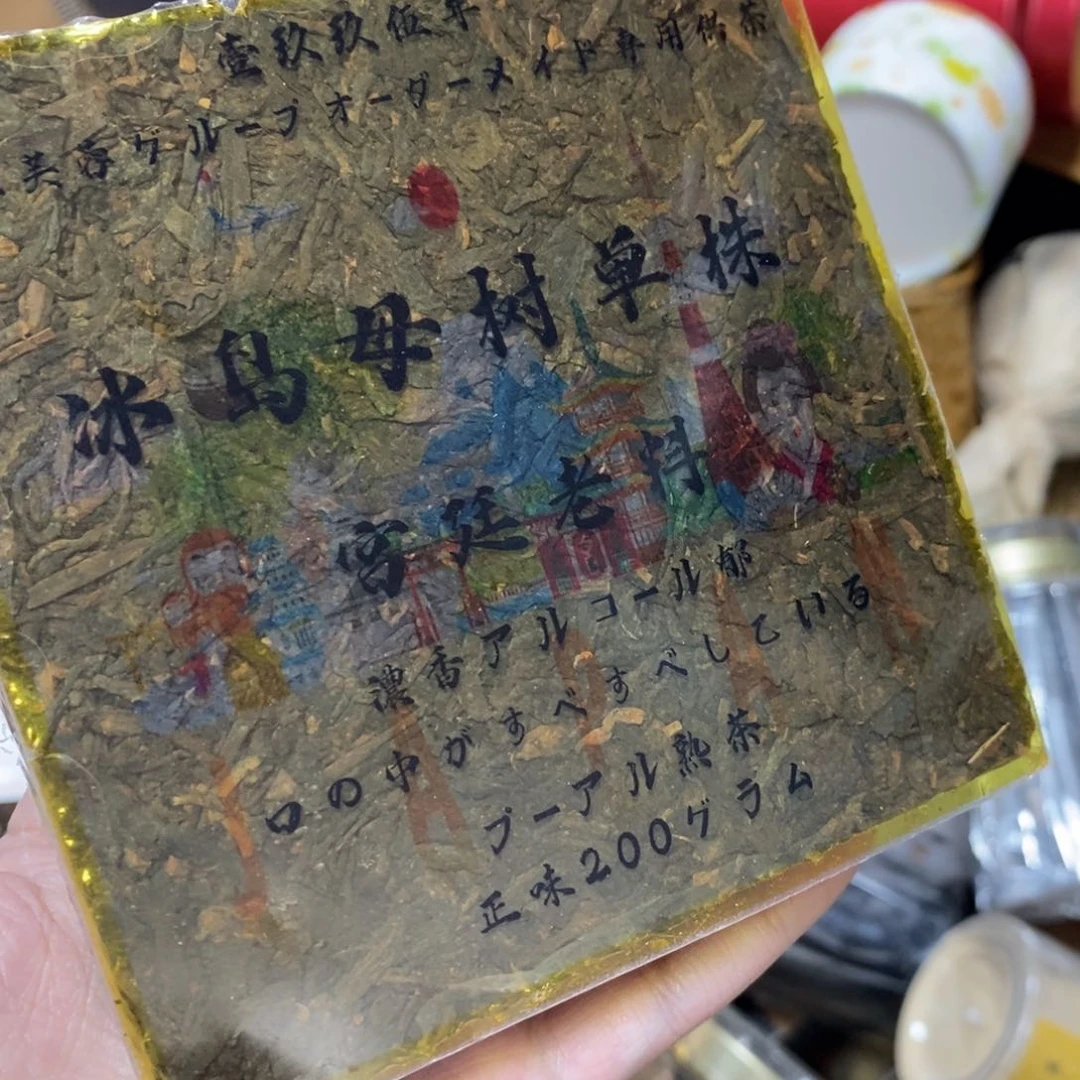 壹玖玖伍年
芙蓉グループオーダーメイド専用供茶
冰島母树单株
宮廷老月
濃香アルコール郁
口の中がすべすべしている
プーアル熟茶
正味200グラム